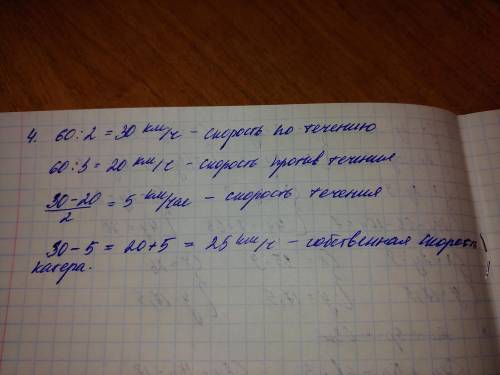 4. 60:2 = 30 км/ч - скорость по течению
60:3 = 20 км/ч - скорость против течения
30-20/2 = 5 км/час - скорость течения
30-5 = 20+5 = 25 км/ч - собственная скорость
катера.